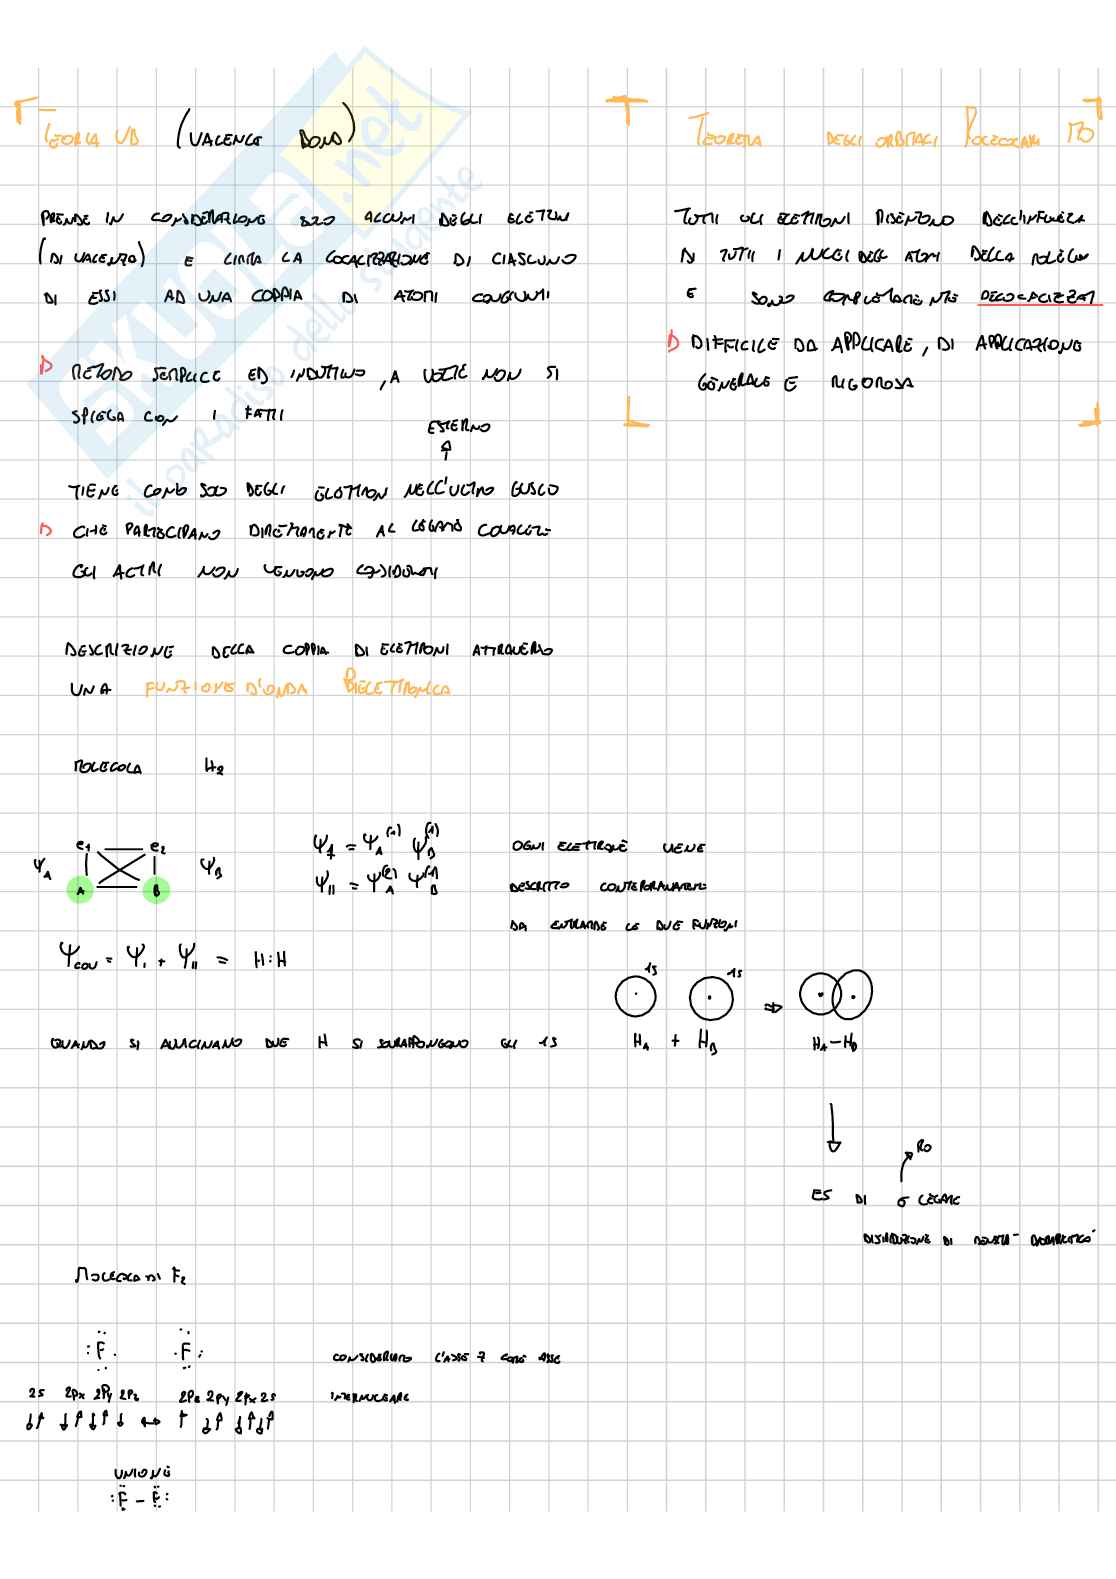 TEORIA VB (VALENCE BOND)
PRENDE IN CONSIDERAZIONE SOLO ALCUNI DEGLI ELETTRN
(DI VALENZA) E LIMITA LA LOCALIZZAZIONE DI CIASCUNO
DI ESSI AD UNA COPPIA DI ATOMI CONGIUNTI
METODO SEMPLICE ED INDUTTIVO, A VOLTE NON SI
SPIEGA CON I FATTI
ESTERNO
TIENE CONTO SOLO DEGLI ELETTRON NELL'ULTIMO GUSCIO
CHE PARTECIPANO DIRETTAMENTE AL LEGAME COVALENTE
GLI ALTRI NON VENGONO CONSIDERATI
DESCRIZIONE DELLA COPPIA DI ELETTRONI ATTRAVERSO
UNA FUNZIONE D'ONDA BIELETTRONICA
TEOREMA DEGLI ORBITALI MOLECOLARI MO
TUTTI GLI ELETTRONI RISENTONO DELL'INFLUENZA
DI TUTTI I NUCLEI DEGLI ATOMI DELLA MOLECOLA
E SONO COMPLETAMENTE DELOCALIZZATI
DIFFICILE DA APPLICARE, DI APPLICAZIONE
GENERALE E RIGOROSA
MOLECOLA H2
e1 e2
ΨA ΨB
A B
ΨI = ΨA(1) ΨB(1)
ΨII = ΨA(2) ΨB(1)
OGNI ELETTRONE VIENE
DESCRITTO CONTEMPORANEAMENTE
DA ENTRAMBE LE DUE FUNZIONI
Ψcov = ΨI + ΨII = H:H
1S 1S
QUANDO SI AVVICINANO DUE H SI SOVRAPPONGONO GLI 1S
HA + HB HA-HB
RO
ES DI σ LEGAME
DISTRIBUZIONE DI DENSITÀ
MOLECOLA DI F2
:F. .F:
CONSIDERIAMO L'ASSE Z COME ASSE
INTERNUCLEARE
2S 2Px 2Py 2Pz 2Pz 2Py 2Px 2S
UNIONE
:F - F: